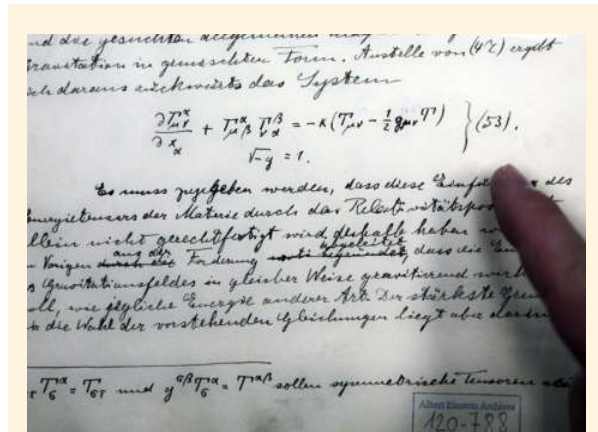 nd die gesuchten allgemeinen
Gravitation in gemischter Form. Anstelle von (47) ergibt
ch daraus rückwärts das System
∂Γ^α_μν / ∂x_α + Γ^α_μβ Γ^β_να = -κ(T_μν - 1/2 g_μν T) } (53).
√-g = 1.
Es muss zugegeben werden, dass diese Einfü des
Energietensors der Materie durch das Relativitätspos
llein nicht gerechtfertigt wird; deshalb haben
Vorigen aus der Forderung abgeleitet, dass die
s Gravitationsfeldes in gleicher Weise gravitierend
oll, wie jegliche Energie anderer Art. Der stärkste
die Wahl der vorstehenden Gleichungen liegt aber darin
T^α_σ = T_στ und g^σβ T^α_σ = T^αβ sollen symmetrische Tensoren
Albert Einstein Archives
120-788